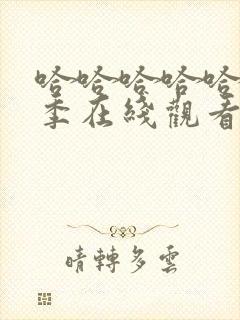 哈哈哈哈哈
季在綫觀看
晴轉多雲